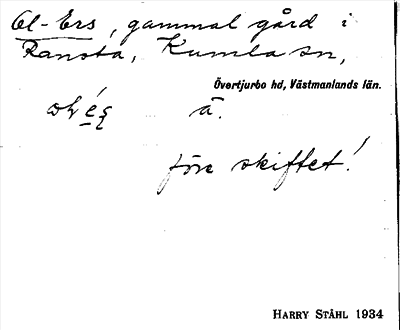 Ol-Ers, gammal gård i
Ransta, Kumla sn,
Övertjurbo hd, Västmanlands län.
ä.
före skiftet!
HARRY STÅHL 1934